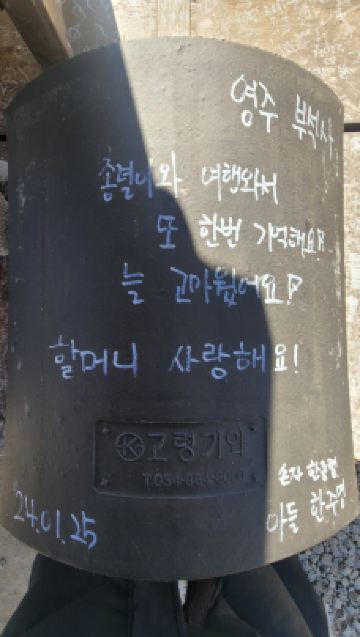 영주 부석사
종결이와 여행와서
또 한번 기억해요♡
늘 고마웠어요♡
할머니 사랑해요!
고령기와
손자 한종결
24.01.25
아들 한주영